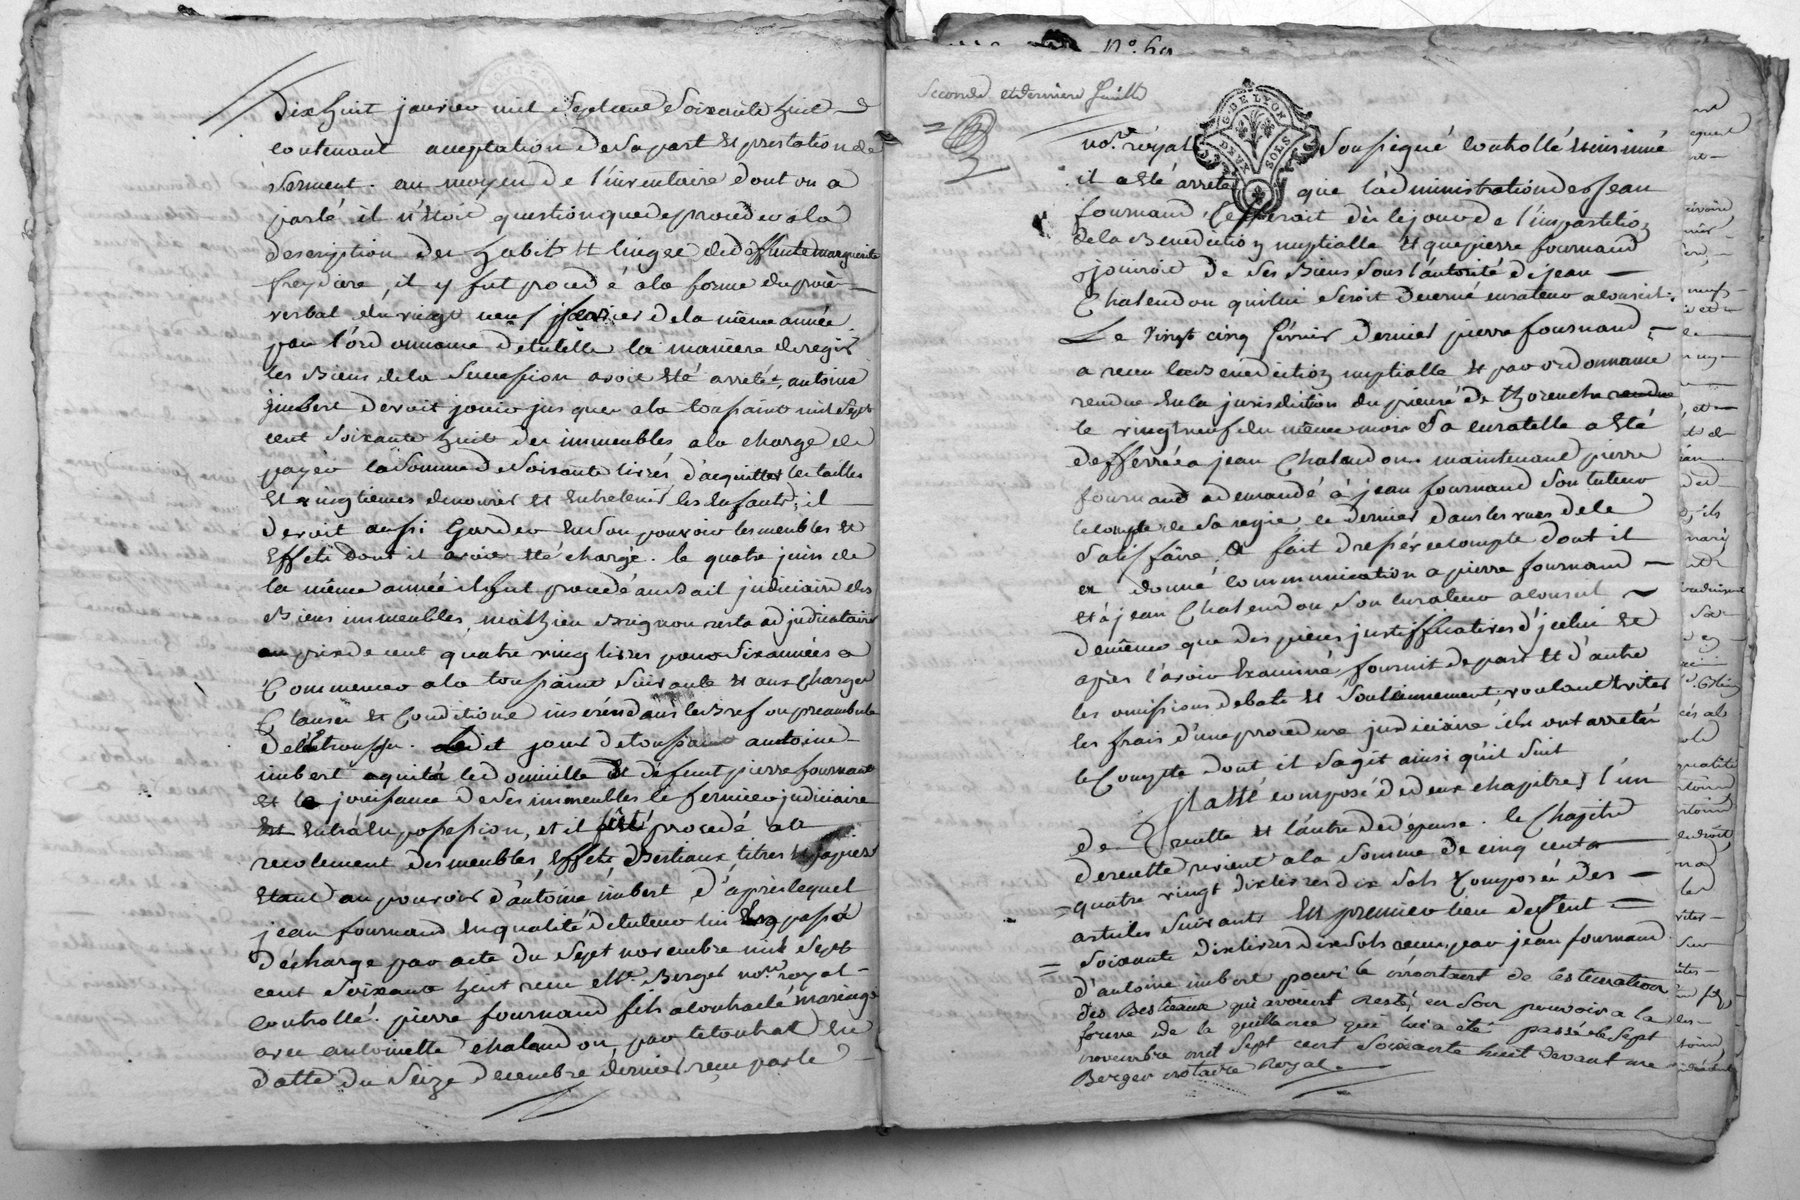 dix huit janvier mil sept cent soixante huit
contenant acceptation de sa part et prestation de
serment. au moyen de l'inventaire dont on a
parlé il n'etoit question que de proceder a la
description des habits et linges de deffunte marguerite
freydiere, il y fut procedé a la forme du procès
verbal du vingt neuf janvier de la même année
par l'ordonnance de tutelle la maniere de regir
les Biens de la succession avoit été arretée, antoine
imbert devoit jouir jusques a la toussaint mil sept
cent soixante huit des immeubles a la charge de
payer la somme de soixante livres d'acquitter les tailles
et vingtiemes de nourir et entretenir les enfants, il
devoit aussi Garder en son pouvoir les meubles et
effets dont il avoit été chargé. le quatre juin de
la même année il fut procedé au bail judiciaire des
Biens immeubles, mathieu Brignon resta adjudicataire
au prix de cent quatre vingt livres pour six années a
Commencer a la toussaint suivante et aux charges
Clauses et Conditions inserées dans le Bref ou preambule
de letrousse. Ledit jour de toussaint antoine
imbert a quité le domicille de défunt pierre fournand
et la jouissance de ses immeubles le fermier judiciaire
entra en possession, et il fut procedé au
recolement des meubles, effets Bestiaux titres et papiers
etant au pouvoir d'antoine imbert d'après lequel
jean fournand en qualité de tuteur lui en passa
décharge par acte du sept novembre mil sept
cent soixante huit reçu Me. Berger nore. royal
controllé. pierre fournand fils a contracté mariage
avec antoinette chalandon par le contrat en
datte du seize decembre dernier reçu par le
No. 69
Seconde et derniere feuille
G. DE LYON
DEUX SOLS
nore. royal soussigné controllé et insinué
il a été arreté que l'administration de jean
fournand, cesseroit dès le jour de l'impartition
de la Benediction nuptialle et que pierre fournand
jouiroit de ses Biens sous l'autorité de jean
Chalendon qui lui seroit decerné curateur a conseil.
Le vingt cinq fevrier dernier pierre fournand
a recu la Benediction nuptialle et par ordonnance
rendue en la jurisdiction du prieuré de
le vingt neuf du même mois sa curatelle a été
defferrée a jean Chalandon. maintenant pierre
fournand a demandé à jean fournand son tuteur
le compte de sa regie, ce dernier dans les vues de le
satisfaire, a fait dresser le compte dont il
a donné communication a pierre fournand
et à jean Chalendon son curateur a conseil
de même que des pieces justifficatives d'icelui et
après l'avoir examiné, fournit de part et d'autre
les omissions debats et soutennements, voulant eviter
les frais d'une procedure judiciaire ils ont arretés
le Compte dont il s'agit ainsi qu'il suit
il a été composé de deux chapitres l'un
de Recette et l'autre de dépense. le Chapitre
de recette revient a la somme de cinq cents
quatre vingt dix livres dix sols Composée des
articles suivants En premier lieu de cent
soixante dix livres dix sols reçus par jean fournand
d'antoine imbert pour le montant de l'estimation
des Bestiaux qui avoient resté en son pouvoir a la
forme de la quittance qui lui a été passée le sept
novembre mil sept cent soixante huit devant me
Berger notaire Royal.